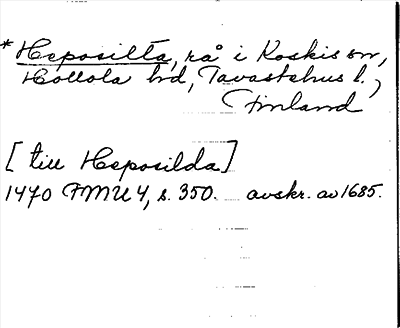 * Heposilta, rå i Koskis sn,
Hollola hd, Tavastehus l.,
Finland
[till Heposilda]
1470 FMU 4, s. 350. avskr. av 1685.